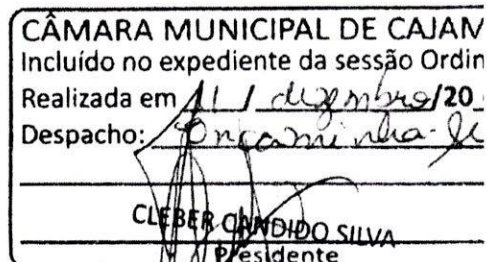 CÂMARA MUNICIPAL DE CAJAM
Incluído no expediente da sessão Ordin
Realizada em 11 / dezembro/20
Despacho: Encaminha-se
CLEBER CANDIDO SILVA
Presidente